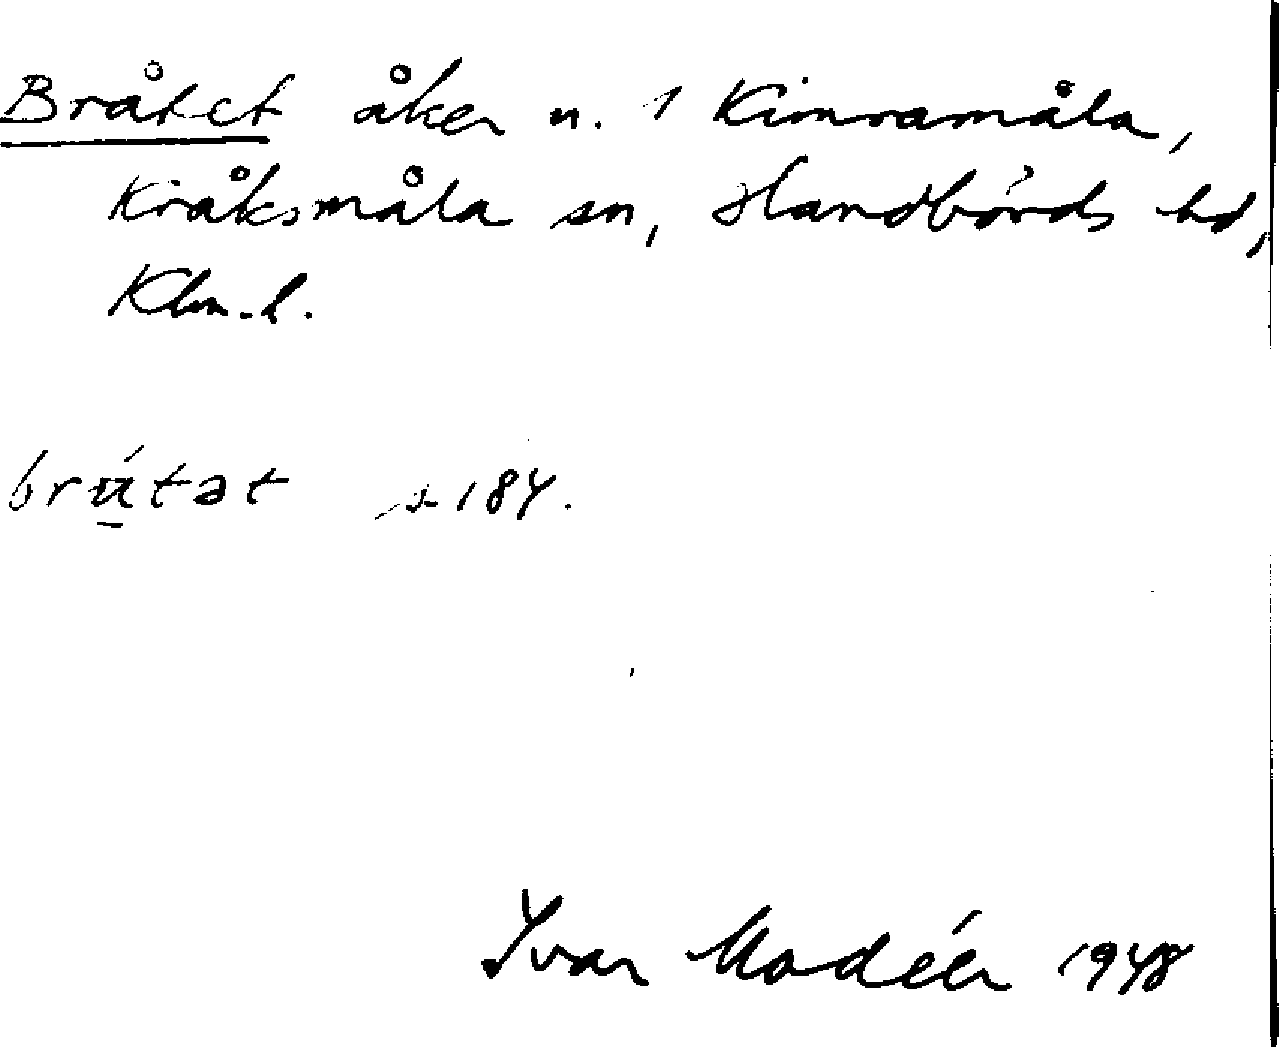 Bråtet åker n. 1 Kimramåla,
Kråksmåla sn, Handbörds hd,
Klm. l.
brútət s 184.
Ivar Modéer 1948